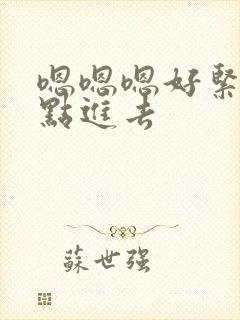 嗯嗯嗯好緊
點進去
蘇世强